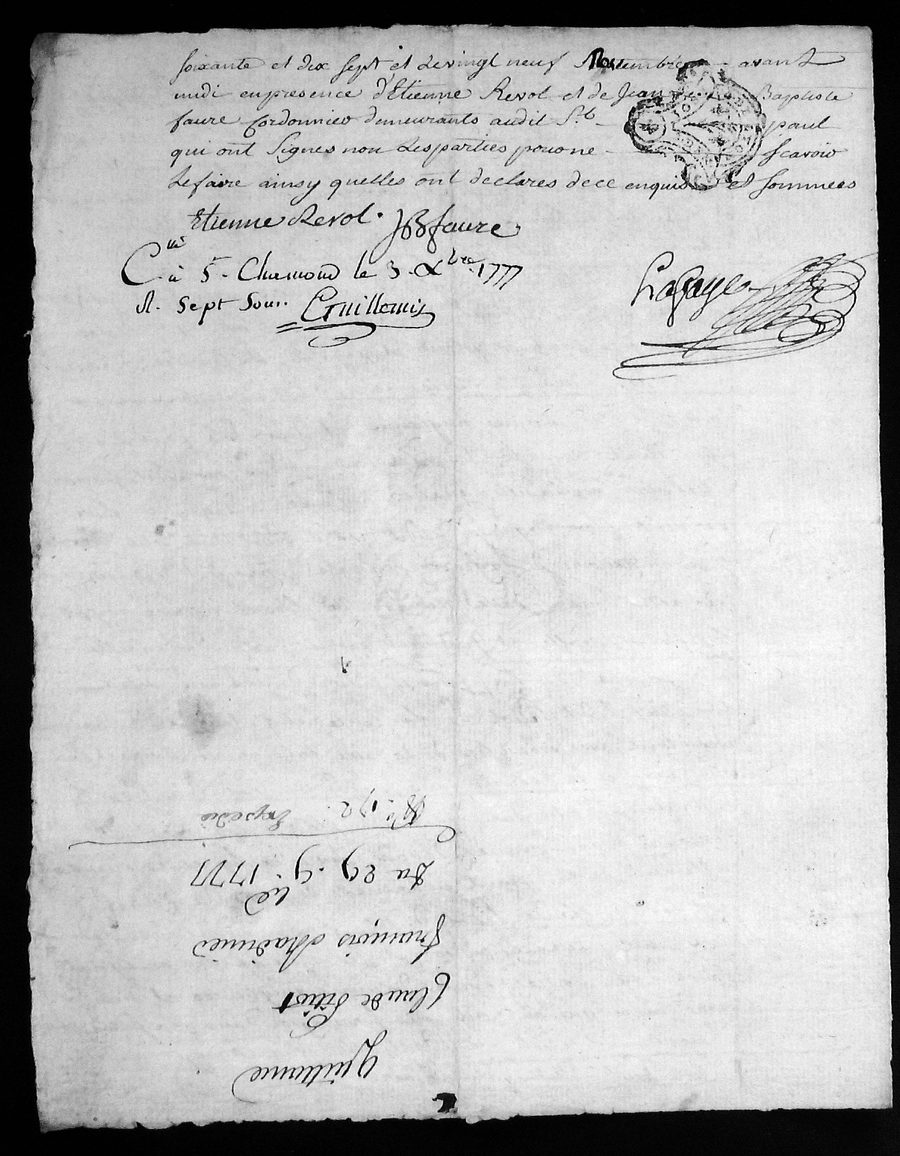 soixante et dix sept et le vingt neuf Novembre avant
midi en presence d'Etienne Revol et de Jean Baptiste
faure Cordonnier demeurants audit St. paul
qui ont Signes non Les parties pour ne scavoir
Le faire ainsy quelles ont declares de ce enquis et sommees
Etienne Revol. JBfaure
C.lé à St. Chamond le 3. Xbre. 1777
R. Sept Sous.
Lafaye
Quittance
Claude
françois
Du 29. 9bre 1777
N.o 172. Expédié